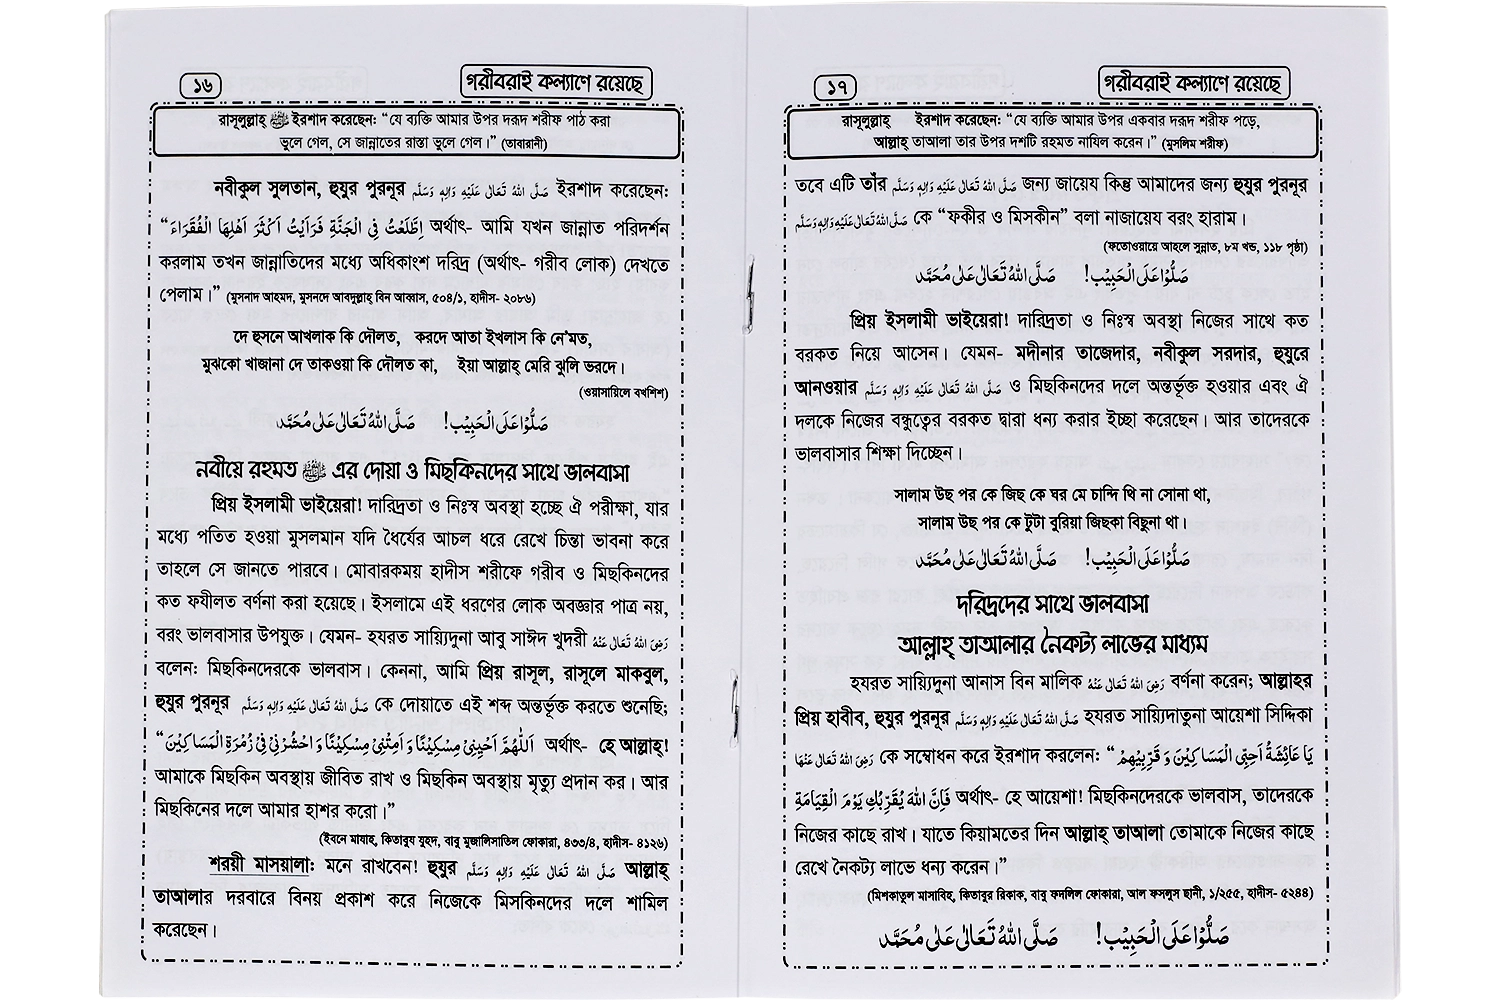 ১৬
গরীবরাই কল্যাণে রয়েছে
রাসূলুল্লাহ্ ﷺ ইরশাদ করেছেন: “যে ব্যক্তি আমার উপর দরূদ শরীফ পাঠ করা
ভুলে গেল, সে জান্নাতের রাস্তা ভুলে গেল।” (তাবারানী)
নবীকুল সুলতান, হুযুর পুরনূর صَلَّى اللهُ تَعَالٰى عَلَيْهِ وَاٰلِهٖ وَسَلَّم ইরশাদ করেছেন:
“اِطَّلَعْتُ فِى الْجَنَّةِ فَرَاَيْتُ اَكْثَرَ اَهْلِهَا الْفُقَرَاءَ অর্থাৎ- আমি যখন জান্নাত পরিদর্শন
করলাম তখন জান্নাতিদের মধ্যে অধিকাংশ দরিদ্র (অর্থাৎ- গরীব লোক) দেখতে
পেলাম।” (মুসনাদ আহমদ, মুসনদে আবদুল্লাহ বিন আব্বাস, ৫০৪/১, হাদীস- ২০৮৬)
দে হুসনে আখলাক কি দৌলত, করদে আতা ইখলাস কি নে'মত,
মুঝকো খাজানা দে তাকওয়া কি দৌলত কা, ইয়া আল্লাহ্ মেরি ঝুলি ভরদে।
(ওয়াসায়িলে বখশিশ)
صَلُّوْا عَلَى الْحَبِيْب! صَلَّى اللهُ تَعَالٰى عَلٰى مُحَمَّد
নবীয়ে রহমত ﷺ এর দোয়া ও মিছকিনদের সাথে ভালবাসা
প্রিয় ইসলামী ভাইয়েরা! দারিদ্রতা ও নিঃস্ব অবস্থা হচ্ছে ঐ পরীক্ষা, যার
মধ্যে পতিত হওয়া মুসলমান যদি ধৈর্যের আচল ধরে রেখে চিন্তা ভাবনা করে
তাহলে সে জানতে পারবে। মোবারকময় হাদীস শরীফে গরীব ও মিছকিনদের
কত ফযীলত বর্ণনা করা হয়েছে। ইসলামে এই ধরণের লোক অবজ্ঞার পাত্র নয়,
বরং ভালবাসার উপযুক্ত। যেমন- হযরত সায়্যিদুনা আবু সাঈদ খুদরী رَضِىَ اللهُ تَعَالٰى عَنْهُ
বলেন: মিছকিনদেরকে ভালবাস। কেননা, আমি প্রিয় রাসূল, রাসূলে মাকবুল,
হুযুর পুরনূর صَلَّى اللهُ تَعَالٰى عَلَيْهِ وَاٰلِهٖ وَسَلَّم কে দোয়াতে এই শব্দ অন্তর্ভূক্ত করতে শুনেছি;
“اَللّٰهُمَّ اَحْيِنِىْ مِسْكِيْنًا وَّاَمِتْنِىْ مِسْكِيْنًا وَّاحْشُرْنِىْ فِىْ زُمْرَةِ الْمَسَاكِيْنَ অর্থাৎ- হে আল্লাহ্!
আমাকে মিছকিন অবস্থায় জীবিত রাখ ও মিছকিন অবস্থায় মৃত্যু প্রদান কর। আর
মিছকিনের দলে আমার হাশর করো।”
(ইবনে মাযাহ, কিতাবুয যুহদ, বাবু মুজালিসাতিল ফোকারা, ৪৩৩/৪, হাদীস- ৪১২৬)
শরয়ী মাসয়ালা: মনে রাখবেন! হুযুর صَلَّى اللهُ تَعَالٰى عَلَيْهِ وَاٰلِهٖ وَسَلَّم আল্লাহ্
তাআলার দরবারে বিনয় প্রকাশ করে নিজেকে মিসকিনদের দলে শামিল
করেছেন।
১৭
গরীবরাই কল্যাণে রয়েছে
রাসূলুল্লাহ্ ইরশাদ করেছেন: “যে ব্যক্তি আমার উপর একবার দরূদ শরীফ পড়ে,
আল্লাহ্ তাআলা তার উপর দশটি রহমত নাযিল করেন।” (মুসলিম শরীফ)
তবে এটি তাঁর صَلَّى اللهُ تَعَالٰى عَلَيْهِ وَاٰلِهٖ وَسَلَّم জন্য জায়েয কিন্তু আমাদের জন্য হুযুর পুরনূর
صَلَّى اللهُ تَعَالٰى عَلَيْهِ وَاٰلِهٖ وَسَلَّم কে “ফকীর ও মিসকীন” বলা নাজায়েয বরং হারাম।
(ফতোওয়ায়ে আহলে সুন্নাত, ৮ম খন্ড, ১১৮ পৃষ্ঠা)
صَلُّوْا عَلَى الْحَبِيْب! صَلَّى اللهُ تَعَالٰى عَلٰى مُحَمَّد
প্রিয় ইসলামী ভাইয়েরা! দারিদ্রতা ও নিঃস্ব অবস্থা নিজের সাথে কত
বরকত নিয়ে আসেন। যেমন- মদীনার তাজেদার, নবীকুল সরদার, হুযুরে
আনওয়ার صَلَّى اللهُ تَعَالٰى عَلَيْهِ وَاٰلِهٖ وَسَلَّم ও মিছকিনদের দলে অন্তর্ভূক্ত হওয়ার এবং ঐ
দলকে নিজের বন্ধুত্বের বরকত দ্বারা ধন্য করার ইচ্ছা করেছেন। আর তাদেরকে
ভালবাসার শিক্ষা দিচ্ছেন।
সালাম উছ পর কে জিছ কে ঘর মে চান্দি থি না সোনা থা,
সালাম উছ পর কে টুটা বুরিয়া জিছকা বিছুনা থা।
صَلُّوْا عَلَى الْحَبِيْب! صَلَّى اللهُ تَعَالٰى عَلٰى مُحَمَّد
দরিদ্রদের সাথে ভালবাসা
আল্লাহ্ তাআলার নৈকট্য লাভের মাধ্যম
হযরত সায়্যিদুনা আনাস বিন মালিক رَضِىَ اللهُ تَعَالٰى عَنْهُ বর্ণনা করেন; আল্লাহর
প্রিয় হাবীব, হুযুর পুরনূর صَلَّى اللهُ تَعَالٰى عَلَيْهِ وَاٰلِهٖ وَسَلَّم হযরত সায়্যিদাতুনা আয়েশা সিদ্দিকা
رَضِىَ اللهُ تَعَالٰى عَنْهَا কে সম্বোধন করে ইরশাদ করলেন: “يَا عَائِشَةُ اَحِبِّى الْمَسَاكِيْنَ وَ قَرِّبِيْهِمْ
فَاِنَّ اللهَ يُقَرِّبُكِ يَوْمَ الْقِيَامَةِ অর্থাৎ- হে আয়েশা! মিছকিনদেরকে ভালবাস, তাদেরকে
নিজের কাছে রাখ। যাতে কিয়ামতের দিন আল্লাহ্ তাআলা তোমাকে নিজের কাছে
রেখে নৈকট্য লাভে ধন্য করেন।”
(মিশকাতুল মাসাবিহ, কিতাবুর রিকাক, বাবু ফদলিল ফোকারা, আল ফসলুস ছানী, ১/২৫৫, হাদীস- ৫২৪৪)
صَلُّوْا عَلَى الْحَبِيْب! صَلَّى اللهُ تَعَالٰى عَلٰى مُحَمَّد